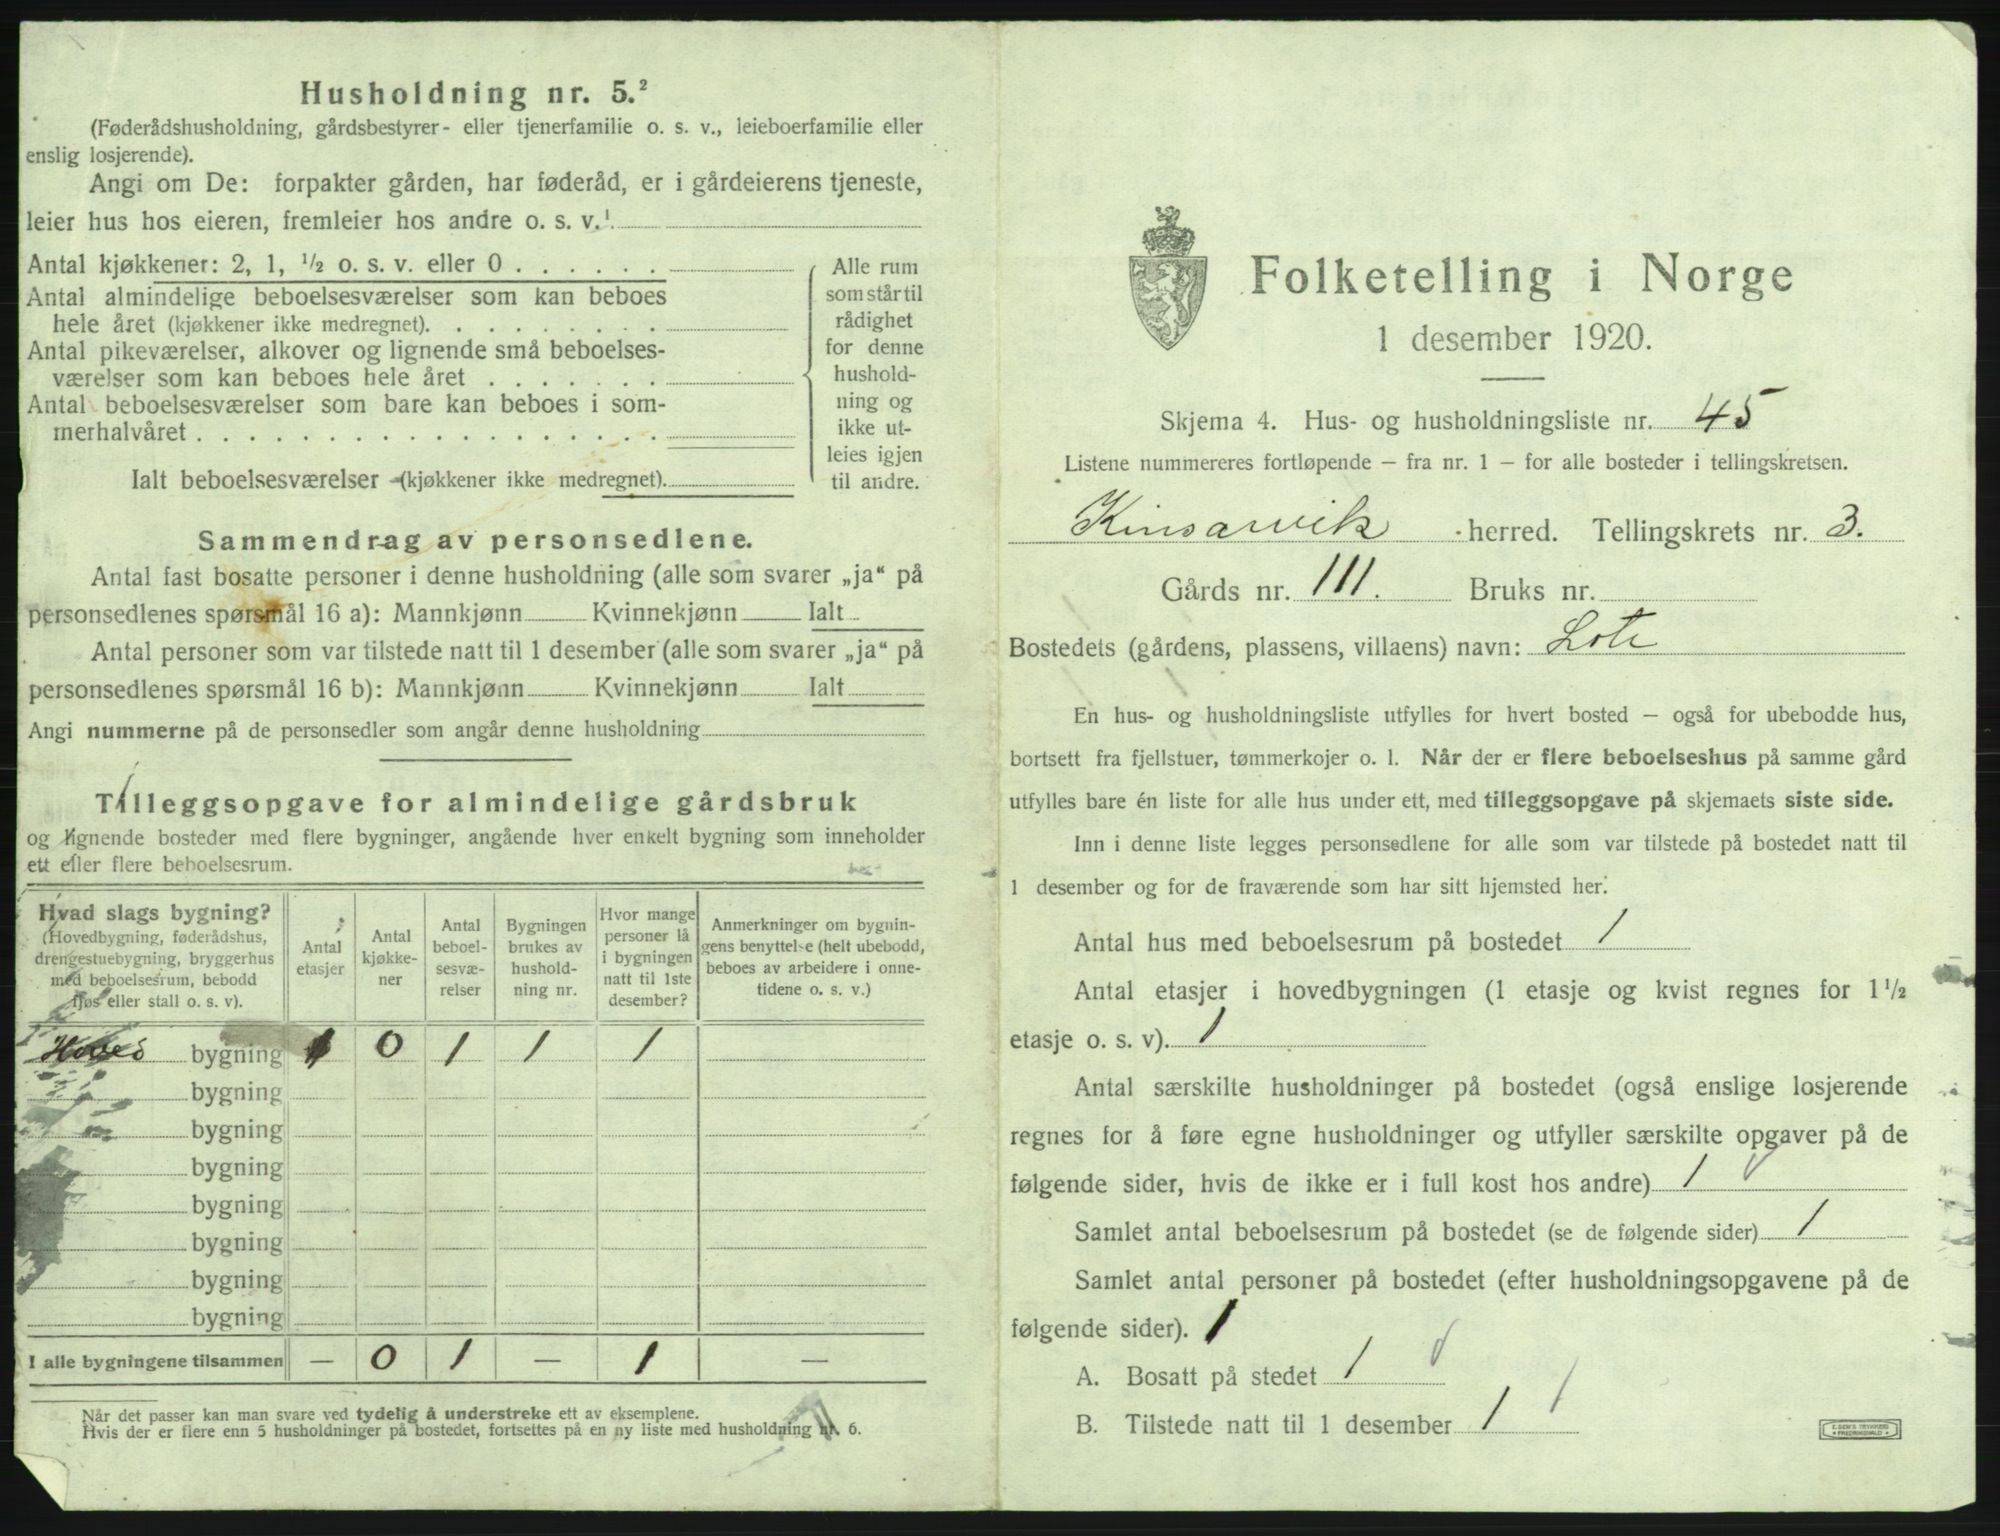 Husholdning nr. 5.²
(Føderådshusholdning, gårdsbestyrer- eller tjenerfamilie o. s. v., leieboerfamilie eller
enslig losjerende).
Angi om De: forpakter gården, har føderåd, er i gårdeierens tjeneste,
leier hus hos eieren, fremleier hos andre o. s. v.¹
Antal kjøkkener: 2, 1, ½ o. s. v. eller 0
Antal almindelige beboelsesværelser som kan beboes
hele året (kjøkkener ikke medregnet).
Antal pikeværelser, alkover og lignende små beboelses-
værelser som kan beboes hele året
Antal beboelsesværelser som bare kan beboes i som-
merhalvåret
Ialt beboelsesværelser (kjøkkener ikke medregnet).
Alle rum
som står til
rådighet
for denne
hushold-
ning og
ikke ut-
leies igjen
til andre.
Sammendrag av personsedlene.
Antal fast bosatte personer i denne husholdning (alle som svarer „ja“ på
personsedlenes spørsmål 16 a): Mannkjønn Kvinnekjønn Ialt
Antal personer som var tilstede natt til 1 desember (alle som svarer „ja“ på
personsedlenes spørsmål 16 b): Mannkjønn Kvinnekjønn Ialt
Angi nummerne på de personsedler som angår denne husholdning
Tilleggsopgave for almindelige gårdsbruk
og lignende bosteder med flere bygninger, angående hver enkelt bygning som inneholder
ett eller flere beboelsesrum.
Hvad slags bygning?
(Hovedbygning, føderådshus,
drengestuebygning, bryggerhus
med beboelsesrum, bebodd
fjøs eller stall o. s. v).
Antal
etasjer
Antal
kjøkke-
ner
Antal
beboel-
sesvæ-
relser
Bygningen
brukes av
hushold-
ning nr.
Hvor mange
personer lå
i bygningen
natt til 1ste
desember?
Anmerkninger om bygnin-
gens benyttelse (helt ubebodd,
beboes av arbeidere i onne-
tidene o. s. v.)
Hoved bygning 1 0 1 1 1
bygning
bygning
bygning
bygning
bygning
bygning
bygning
I alle bygningene tilsammen — 0 1 — 1 —
Når det passer kan man svare ved tydelig å understreke ett av eksemplene.
Hvis der er flere enn 5 husholdninger på bostedet, fortsettes på en ny liste med husholdning nr. 6.
Folketelling i Norge
1 desember 1920.
Skjema 4. Hus- og husholdningsliste nr. 45
Listene nummereres fortløpende — fra nr. 1 — for alle bosteder i tellingskretsen.
Kinsarvik herred. Tellingskrets nr. 3.
Gårds nr. 111. Bruks nr.
Bostedets (gårdens, plassens, villaens) navn: Lote
En hus- og husholdningsliste utfylles for hvert bosted — også for ubebodde hus,
bortsett fra fjellstuer, tømmerkojer o. l. Når der er flere beboelseshus på samme gård
utfylles bare én liste for alle hus under ett, med tilleggsopgave på skjemaets siste side.
Inn i denne liste legges personsedlene for alle som var tilstede på bostedet natt til
1 desember og for de fraværende som har sitt hjemsted her.
Antal hus med beboelsesrum på bostedet 1
Antal etasjer i hovedbygningen (1 etasje og kvist regnes for 1½
etasje o. s. v). 1
Antal særskilte husholdninger på bostedet (også enslige losjerende
regnes for å føre egne husholdninger og utfyller særskilte opgaver på de
følgende sider, hvis de ikke er i full kost hos andre) 1
Samlet antal beboelsesrum på bostedet (se de følgende sider) 1
Samlet antal personer på bostedet (efter husholdningsopgavene på de
følgende sider). 1
A. Bosatt på stedet 1
B. Tilstede natt til 1 desember 1